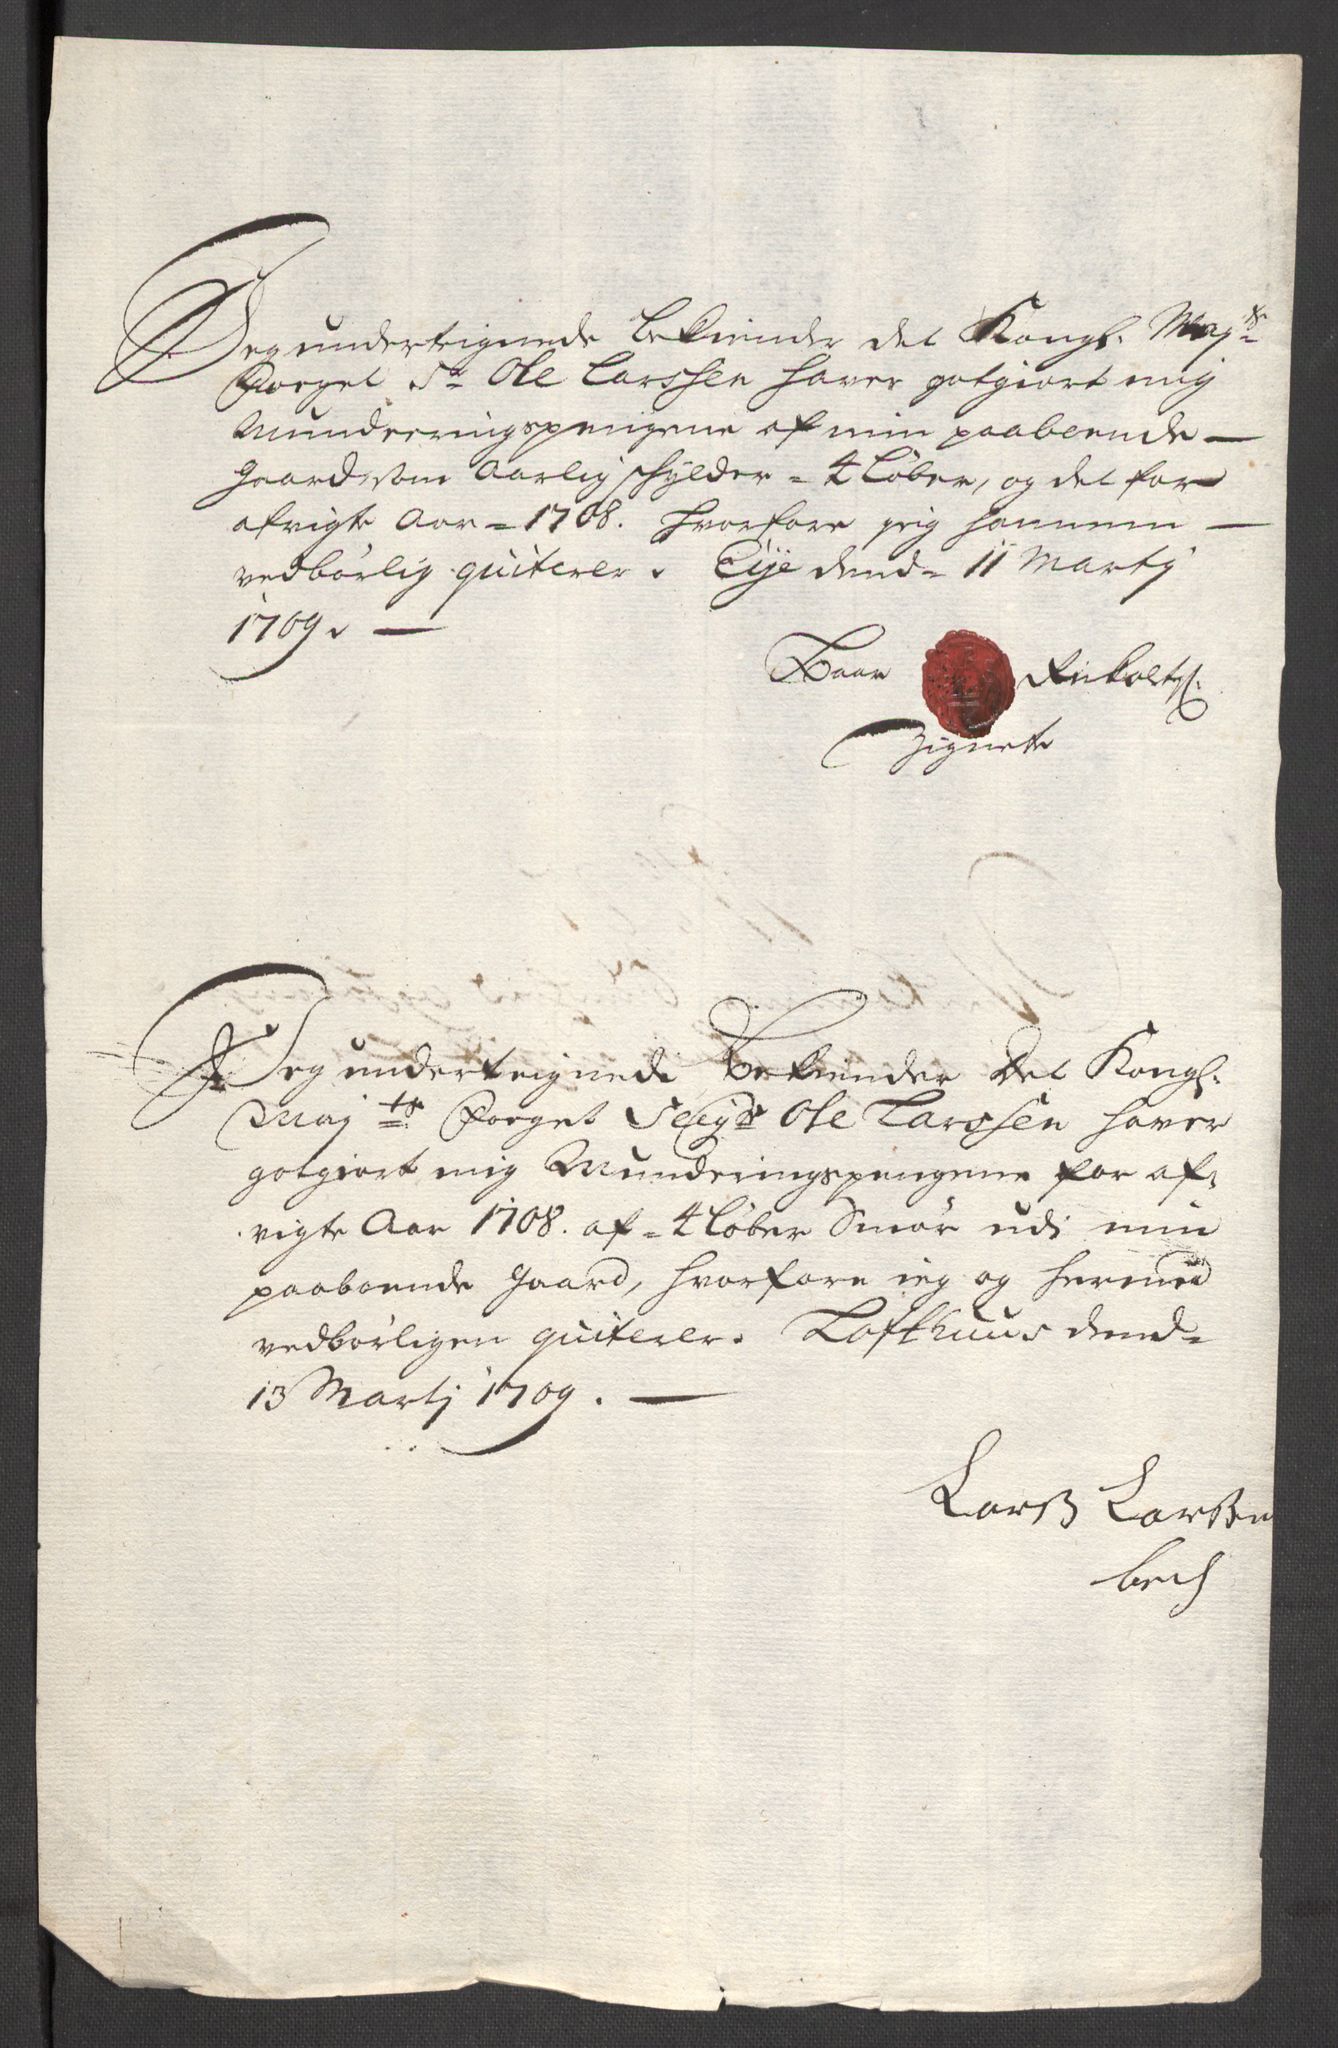 Jeg undertegnede bekiender det Kongl: Maj:ts
Foeget Sr Ole Larssen hafver gotgiort mig
Munderingspengene af min paaboende —
Gaard som Aarlig schylder = 4 Løber, og det for
afvigte Aar = 1708. hvorfore jeg hannem —
vedbørlig quiterer. Eije dend= 11 Martij
1709. —
Baar Rickoltss:
Zignete
Jeg underteignede Bekiender Det Kongl:
Maj:ts Foeget Seig:r Ole Larssen hafver
gotgiort mig Munderingspengene for af=
vigte Aar 1708. af = 4 Løber Smør udi min
paaboende Gaard, hvorfore jeg og hermed
vedbørligen quiterer. Lofthuus dend=
13 Martij 1709. —
Larss Larssen
bech